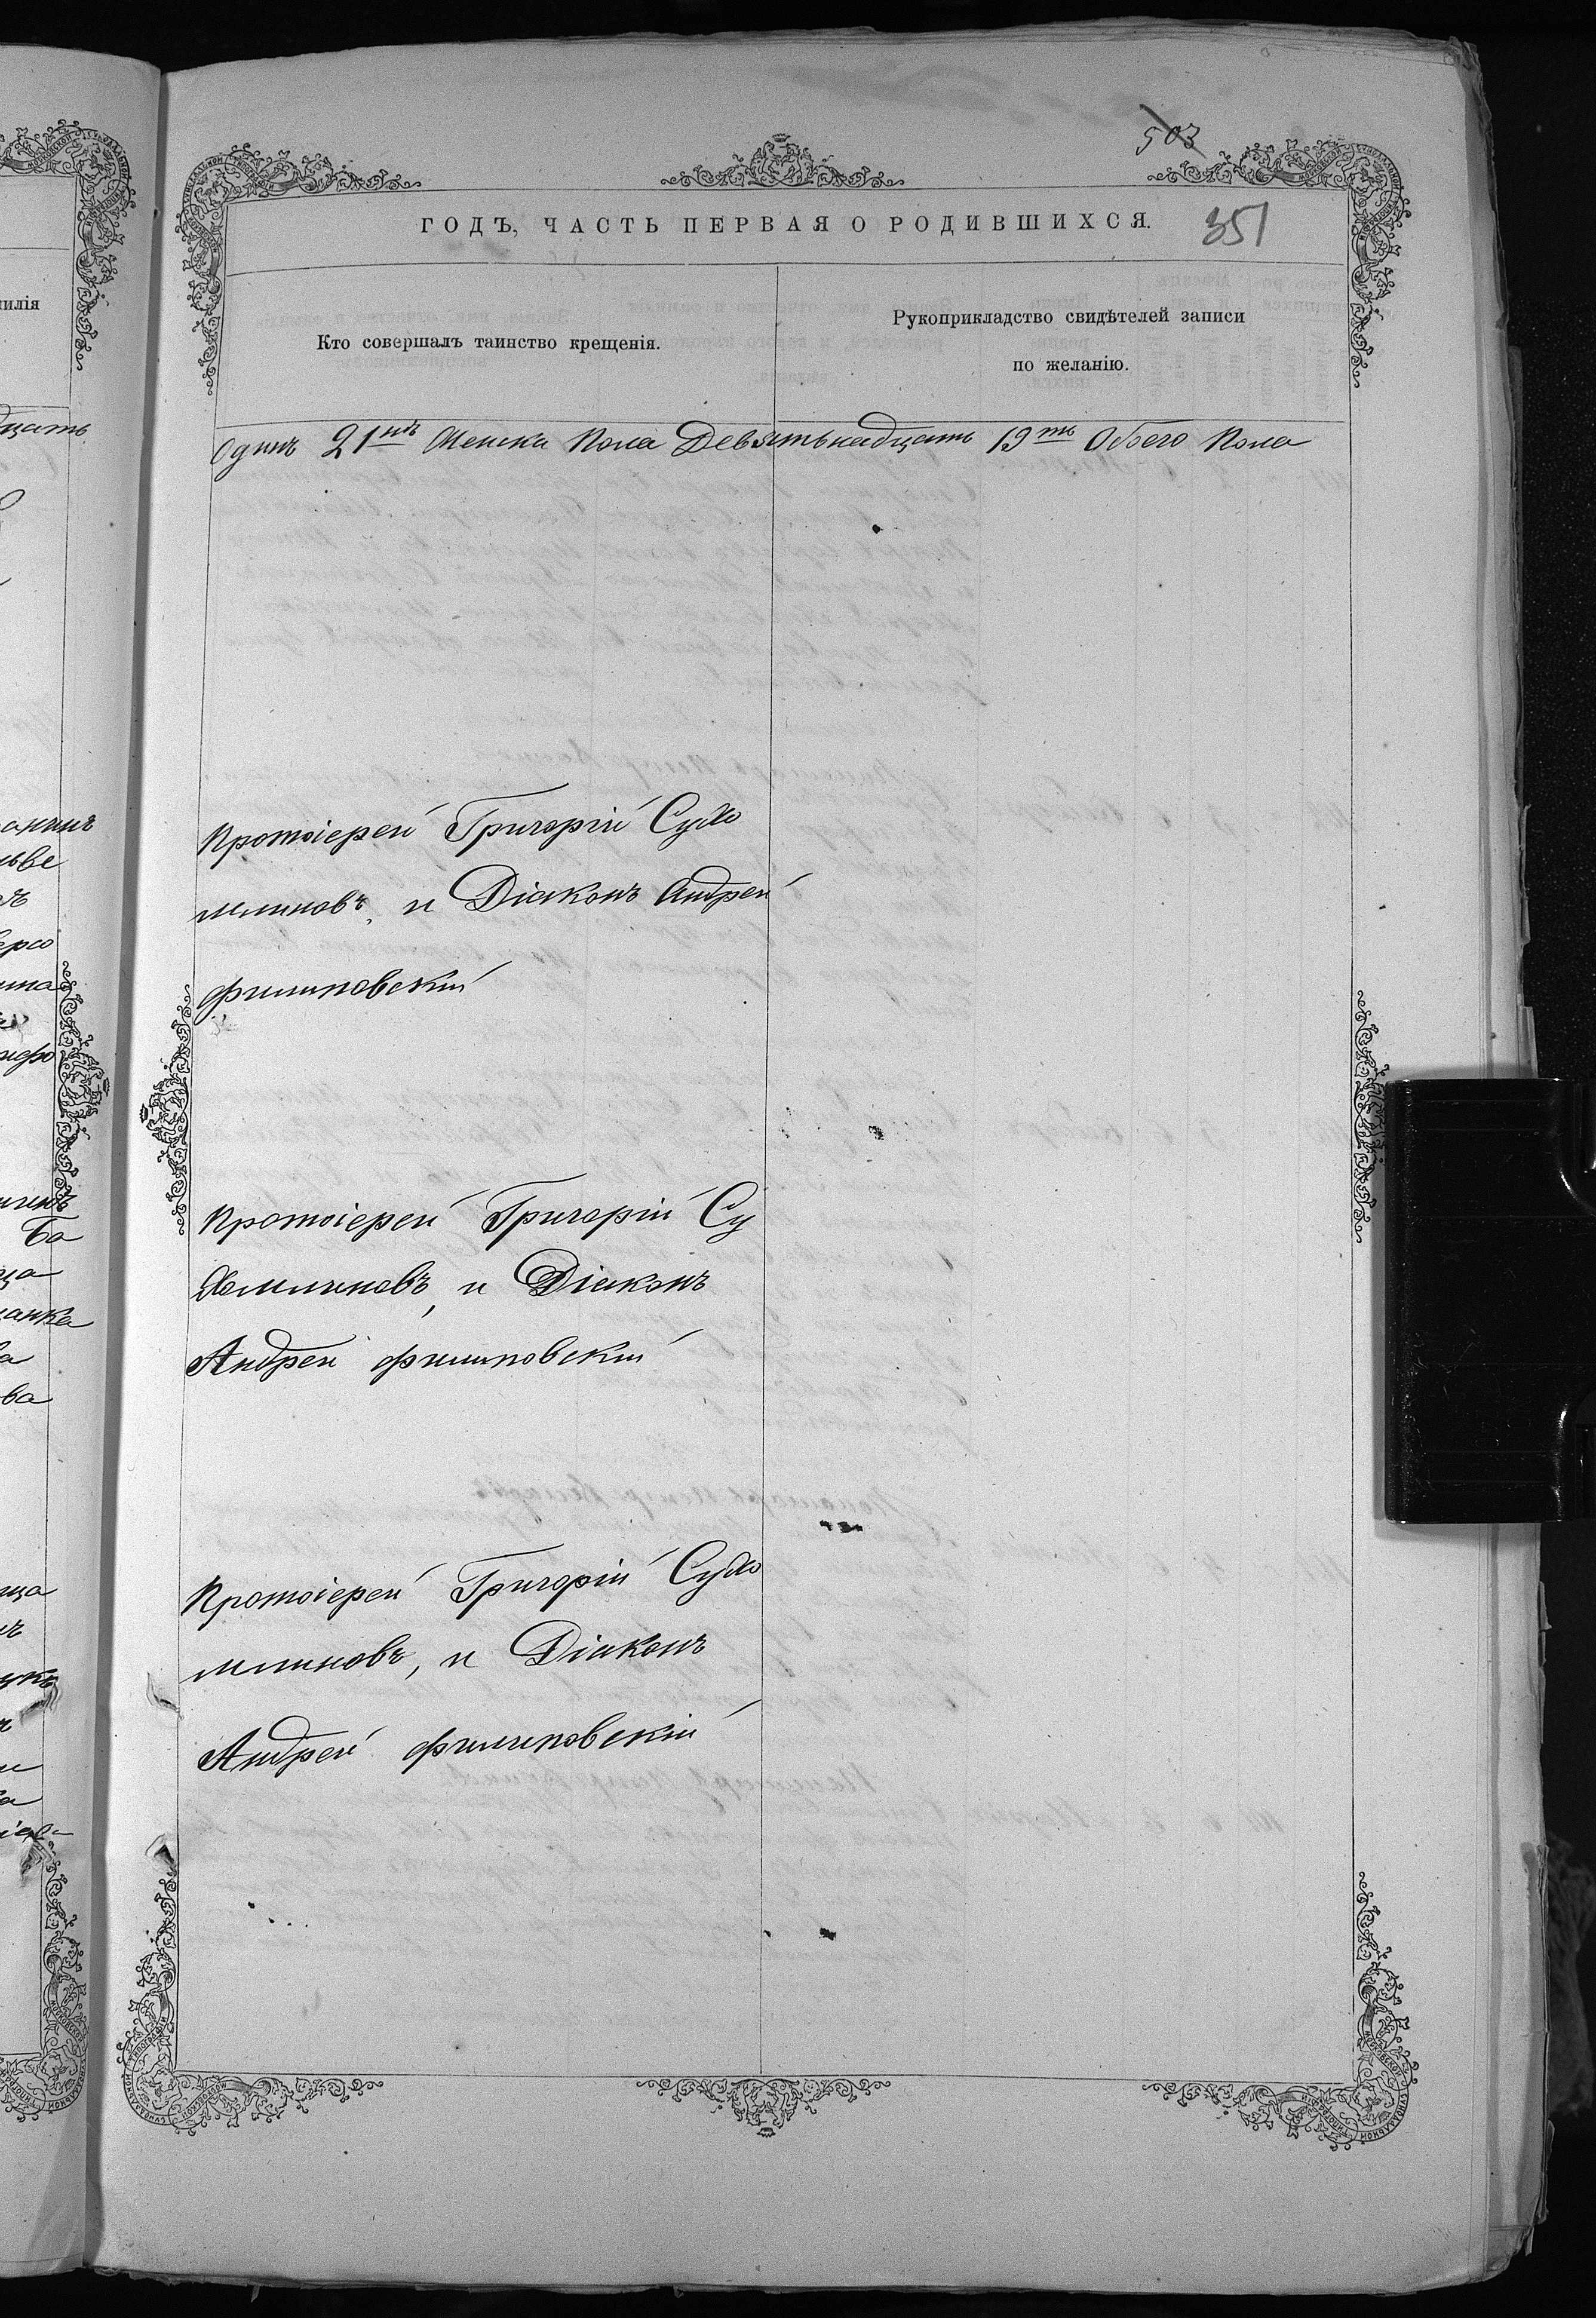 503
ГОДЪ, ЧАСТЬ ПЕРВАЯ О РОДИВШИХСЯ.
351
Кто совершалъ таинство крещенія.
Рукоприкладство свидѣтелей записи
по желанію.
Одинъ 21нъ Женска Пола Девятьнадцать 19ть Обоего Пола
Протоіерей Григорій Судо
миновъ, и Діаконъ Андрей
Филиповскій
Протоіерей Григорій Су
доминовъ, и Діаконъ
Андрей Филиповскій
Протоіерей Григорій Судо
миновъ, и Діаконъ
Андрей Филиповскій